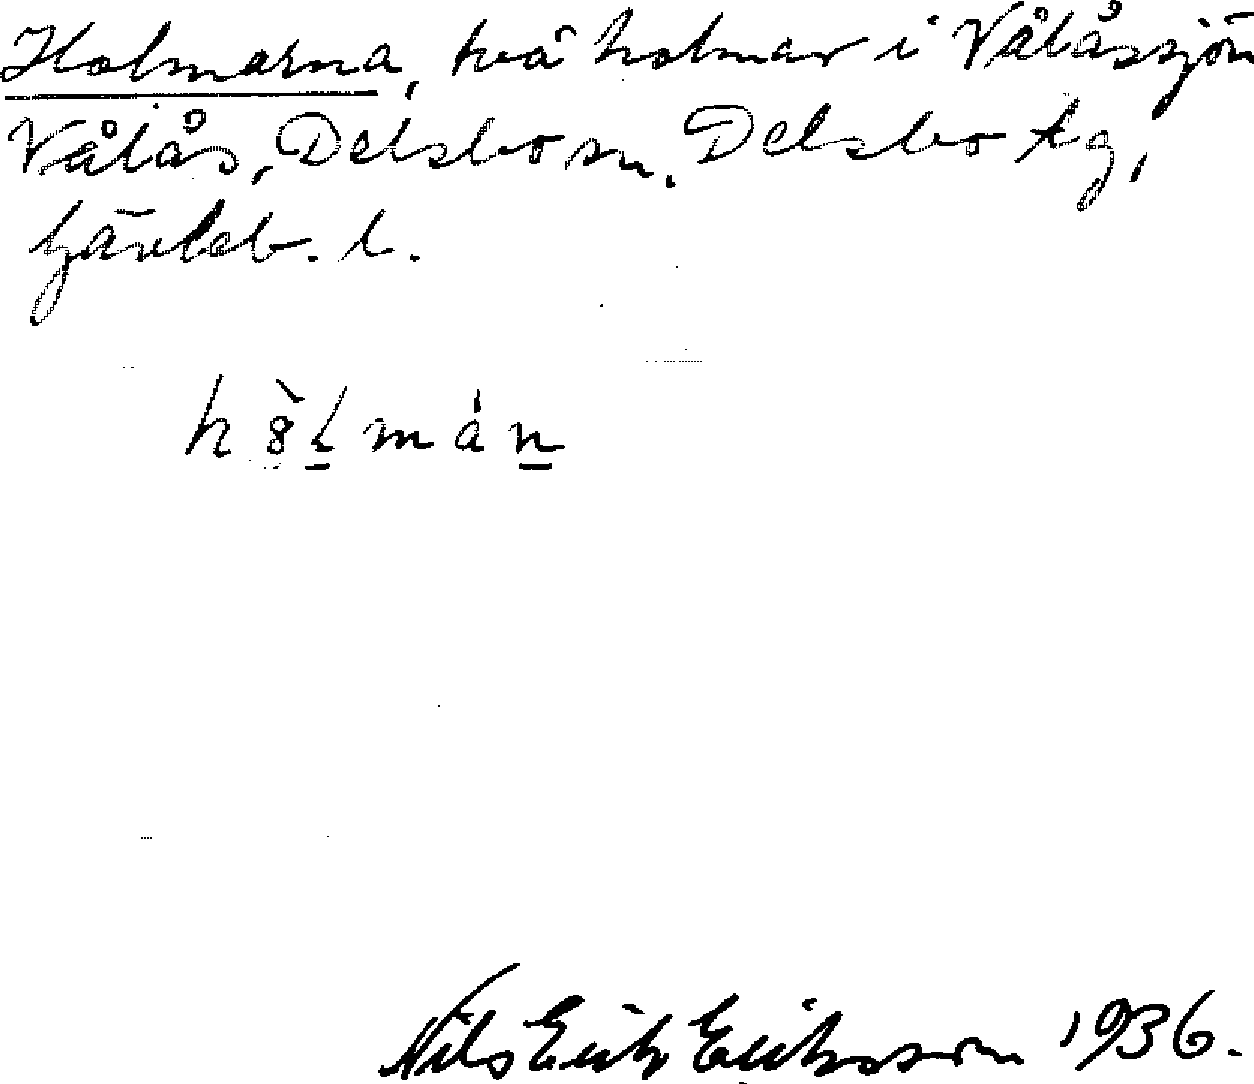 Holmarna, två holmar i Vålåssjön
Vålås, Delsbo sn. Delsbo tg,
Gävleb. l.
h 8̀ l̲ m á n̲
Nils Erik Eriksson 1936.